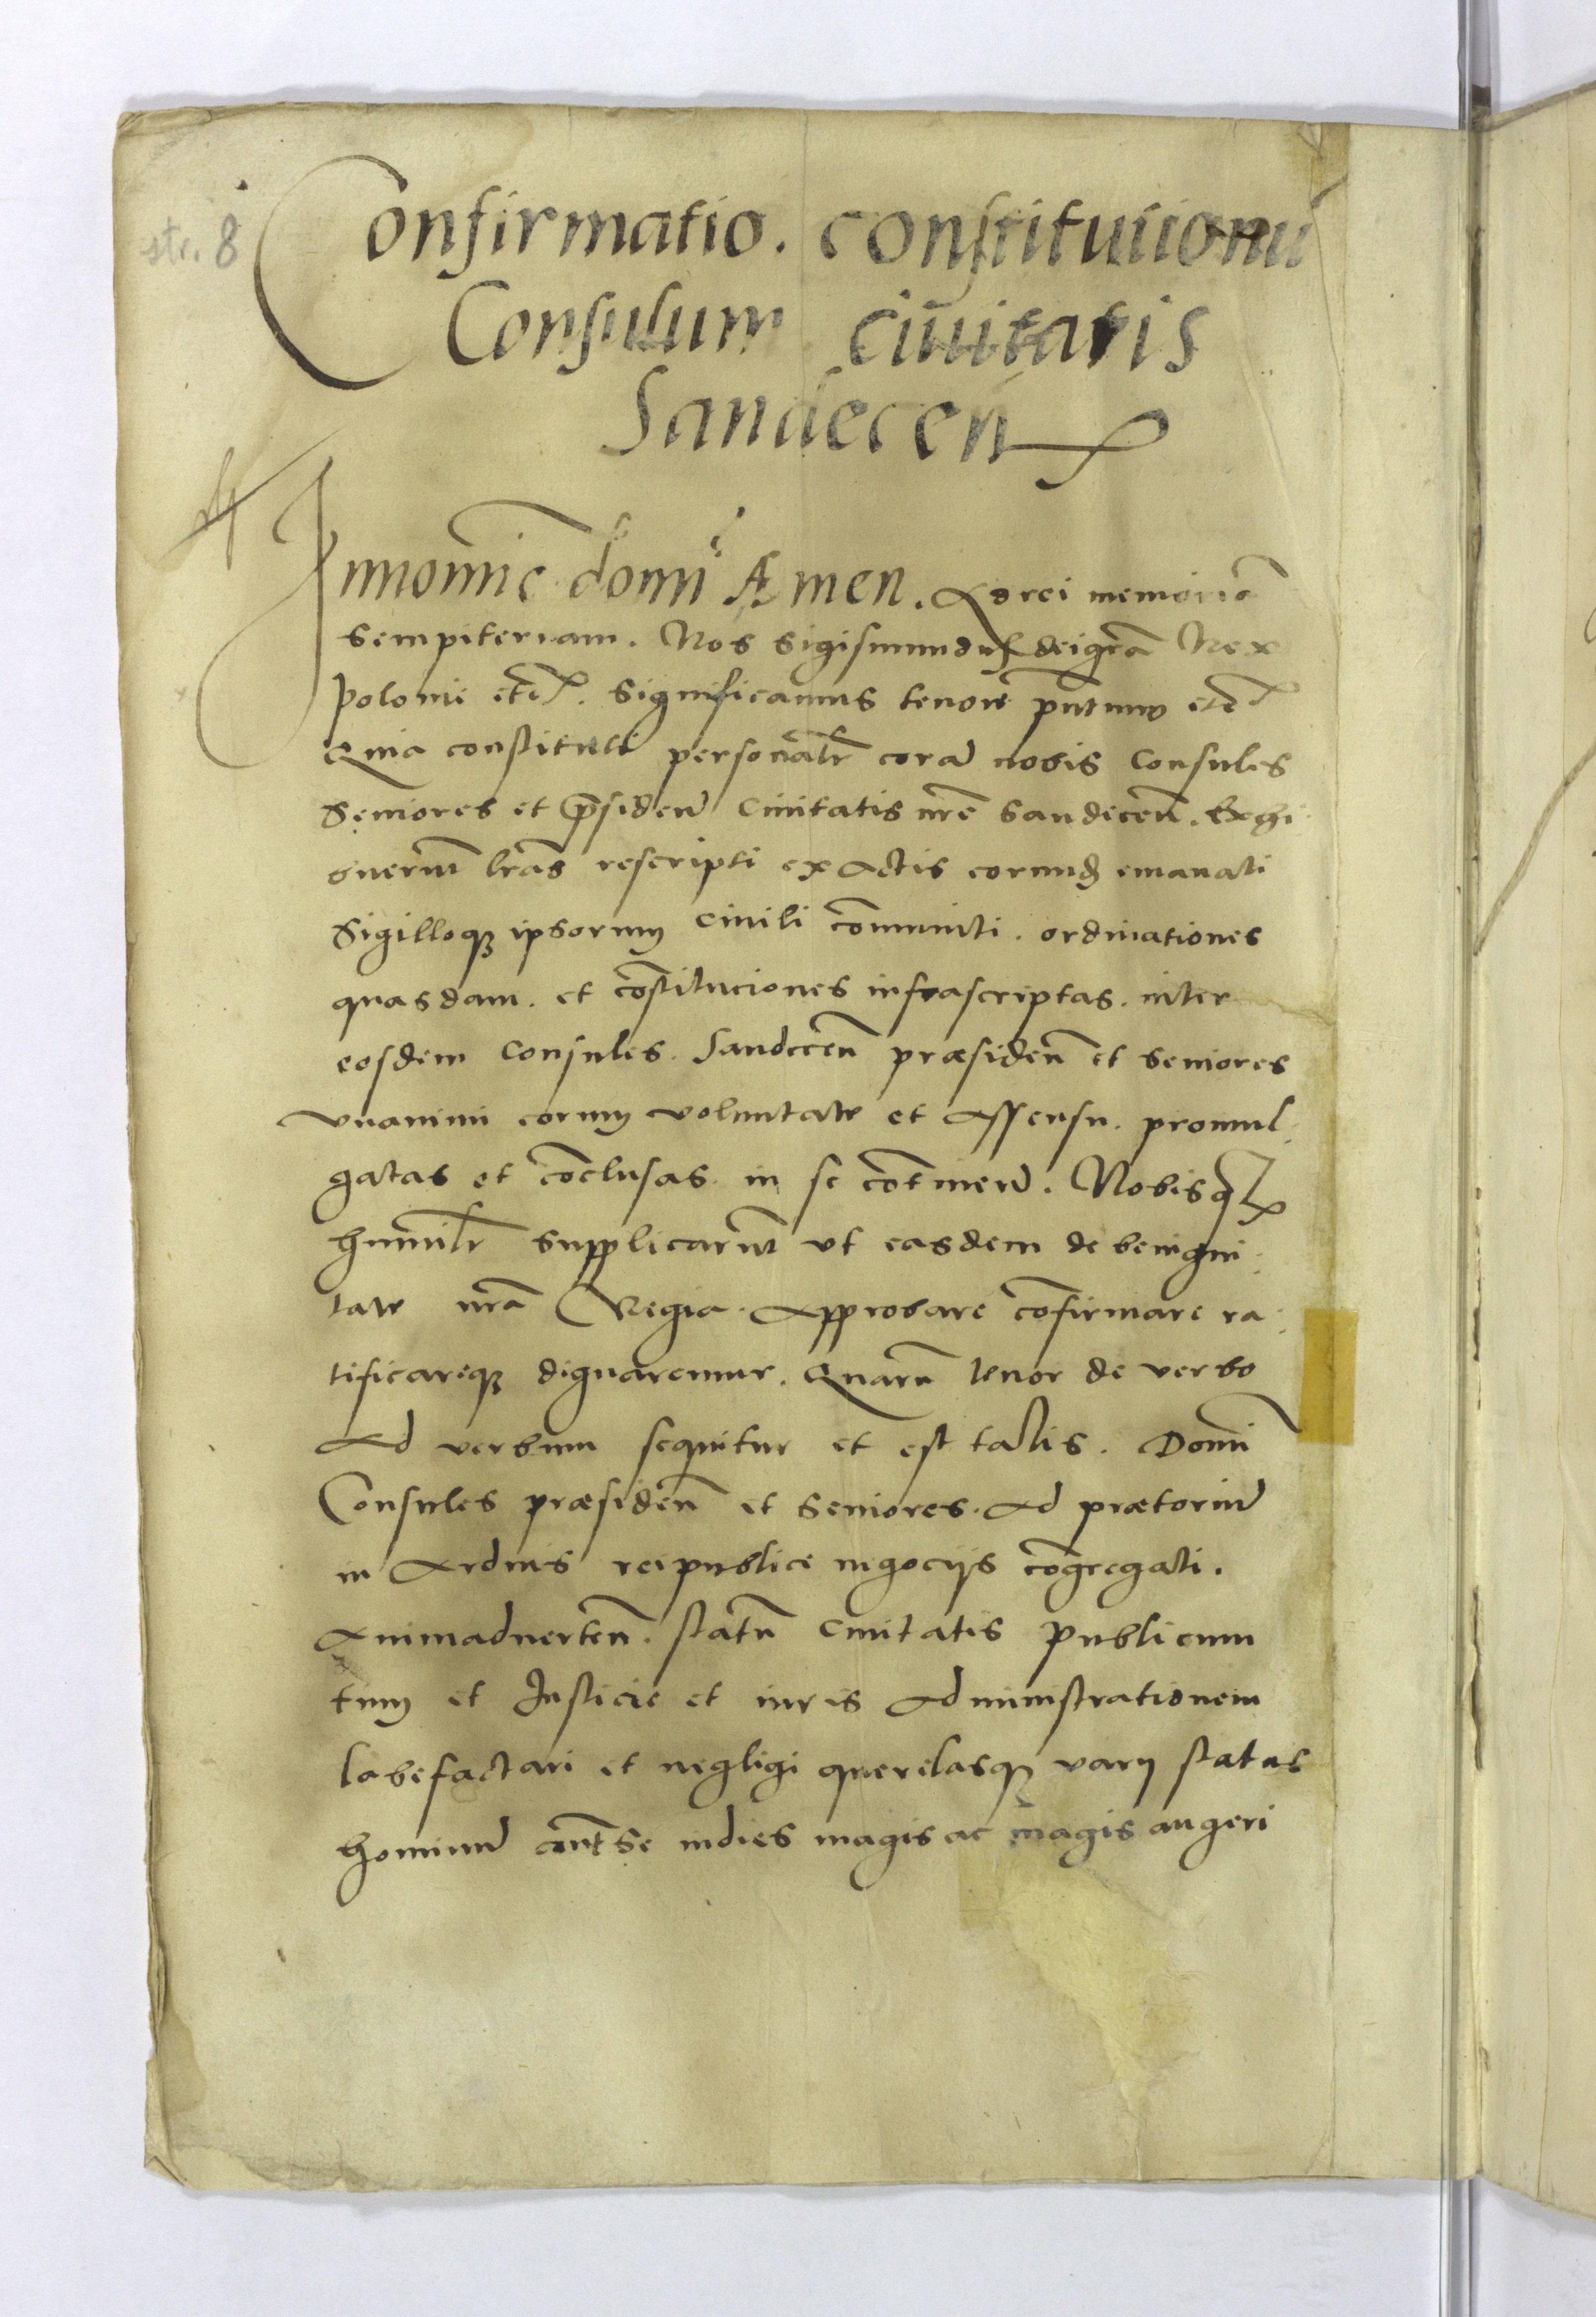 str. 8
Confirmatio. constitutionū
Consulum ciuitatis
Sandecen̄
In nomīe domī Amen. Ad rei memoriā
sempiternam. Nos Sigismundus dei gr̄a Rex
Polonie etc̄. Significamus tenore p̄ntium etc̄
Quia constituti personalr̄ corā nobis Consules
Seniores et p̄siden̄ Ciuitatis nr̄e Sandecen̄. Exhi
buerūt lr̄as rescripti ex Actis eorund̄ emanati
Sigilloqꝫ ipsorum Ciuili cōmuniti. ordinationes
quasdam. et cōstituciones infrascriptas. inter
eosdem Consules. Sandecen̄ præsiden̄ et Seniores
vnanimi eorum voluntate et Assensu. promul
gatas et cōclusas. in se cōtinen̄. Nobisqꝫ
humilr̄ supplicarūt vt easdem de benigni
tate nr̄a Regia. Approbare cōfirmare ra
tificareqꝫ dignaremur. Quarū tenor de verbo
Ad verbum sequitur et est talis. Domī
Consules præsiden̄ et Seniores. Ad prætoriū
in Arduis reipublice negocijs cōgregati.
Animaduerten̄. statū Ciuitatis publicum
tum et Iusticie et iuris Administrationem
labefactari et negligi querelasqꝫ varij status
hominū cōtse indies magis ac magis augeri